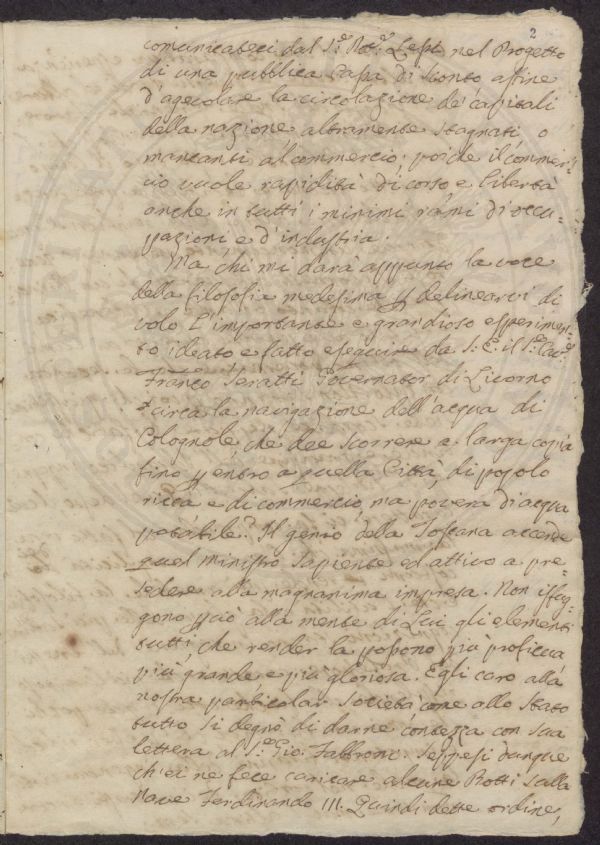 2
comunicateci dal S.r Dot.r Lessi nel Progetto
di una pubblica Cassa di Sconto affine
d'agevolare la circolazione de' capitali
della nazione altramente stagnati o
mancanti al commercio; poiche il commer-
cio vuole rapidità di corso e libertà
anche in tutti i minimi rami d'occu-
pazioni e d'industria.
Ma chi mi darà appunto la voce
della filosofia medesima p delinearvi di
volo l'importante e grandioso esperimen-
to ideato e fatto eseguire da S. E. il S.r Cav.r
Franc.o Seratti Governator di Livorno
circa la navigazione dell'acqua di
Colognole, che dee scorrere a larga copia
fino p entro a quella Città, di popolo
ricca e di commercio, ma povera d'acqua
potabile? Il genio della Toscana accende
quel ministro sapiente ed attivo a pre-
sedere alla magnanima impresa. Non isfug-
gono pciò alla mente di Lui gli elementi
tutti, che render la possono più proficua
più grande e più gloriosa. Egli caro alla
nostra particolar Società come allo Stato
tutto si degnò di darne contezza con sua
lettera al S.r Gio. Fabbroni. Seppesi dunque
ch'ei ne fece caricare alcune Botti sulla
Nave Ferdinando III. Quindi dette ordine,